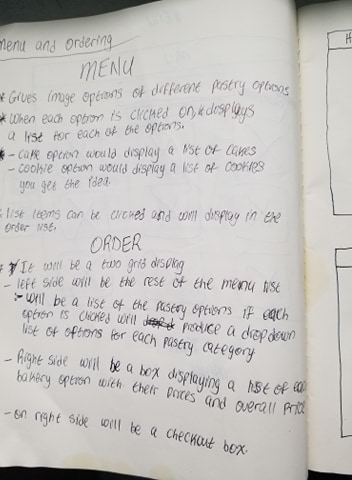 menu and ordering
MENU
* Gives image options of different pastry options
* When each option is clicked on, displays
a list for each of the options.
* - cake option would display a list of cakes
- cookie option would display a list of cookies
you get the idea.
list items can be clicked and will display in the
order list.
ORDER
* It will be a two grid display
- left side will be the rest of the menu list
- will be a list of the pastry options if each
option is clicked will produce a dropdown
list of options for each pastry category
- Right side will be a box displaying a list of each
bakery option with their prices and overall price
- on right side will be a checkout box.
H